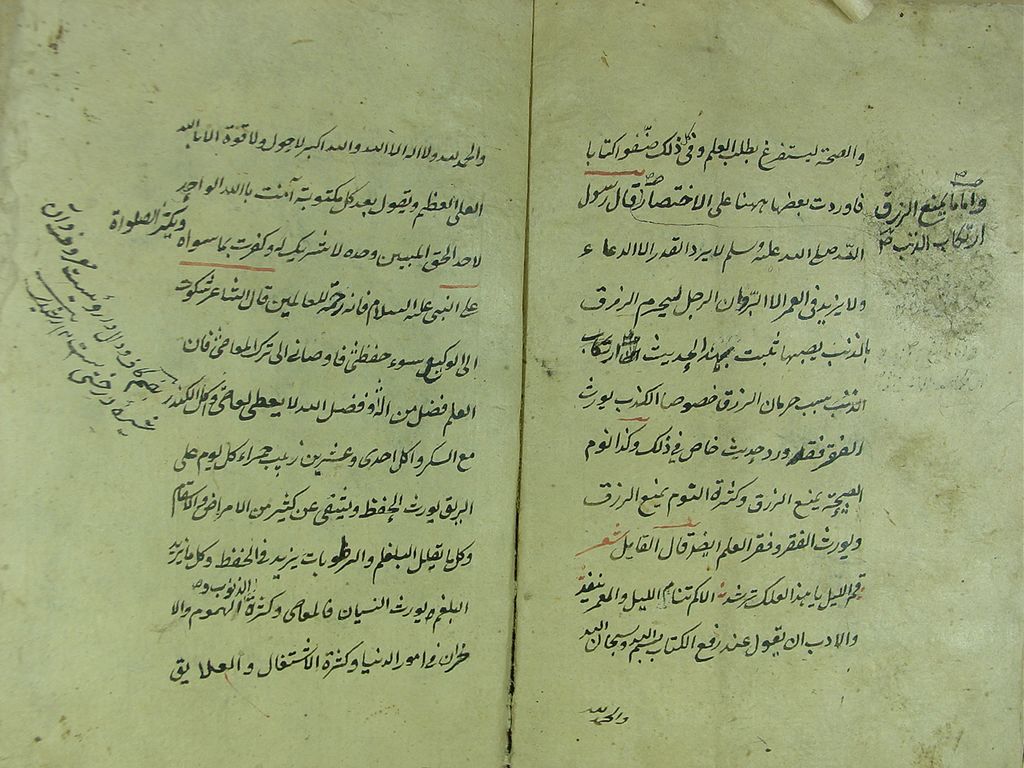 والصحة ليستفرغ بطلب العلم وفى كل ذلك صنفوا كتابا
فاوردت بعضها ههنا على الاختصار قال رسول
الله صلى الله عليه وسلم لا يرد القدر الا الدعاء
ولا يزيد فى العمر الا البر وان الرجل ليحرم الرزق
بالذنب يصبها ثبت بهذا الحديث ان ارتكاب
الذنب سبب حرمان الرزق خصوصا الكذب يورث
الفقر فقد ورد حديث خاص فى ذلك وكذا نوم
الصبحة يمنع الرزق وكثرة النوم يمنع الرزق
ويورث الفقر وفقر العلم ايضا قال القايل شعر
قم الليل يا هذا لعلك ترشد الى كم تنام الليل والعمر ينفد
والادب ان يقول عند رفع الكتاب بسم الله وسبحان الله
والحمد لله
واما ما يمنع الرزق
ارتكاب الذنب
والحمد لله ولا اله الا الله والله اكبر لا حول ولا قوة الا بالله
العلى العظيم ويقول بعد كل مكتوبة آمنت بالله الواحد
الاحد الحق المبين وحده لا شريك له وكفرت بما سواه ويكثر الصلواة
على النبى عليه السلام فانه رحمة للعالمين قال الشاعر شكوت
الى الوكيع سوء حفظى فاوصانى الى ترك المعاصى فان
العلم فضل من الله وفضل الله لا يعطى لعاصى واكل الكندر
مع السكر واكل احدى وعشرين زبيب حمراء كل يوم على
الريق يورث الحفظ ويشفى عن كثير من الامراض والاسقام
وكل ما يقلل البلغم والرطوبات يزيد فى الحفظ وكل ما يزيد
البلغم يورث النسيان فالمعاصى وكثرة الذنوب والهموم والا
حزان فى امور الدنيا وكثرة الاشتغال والعلايق